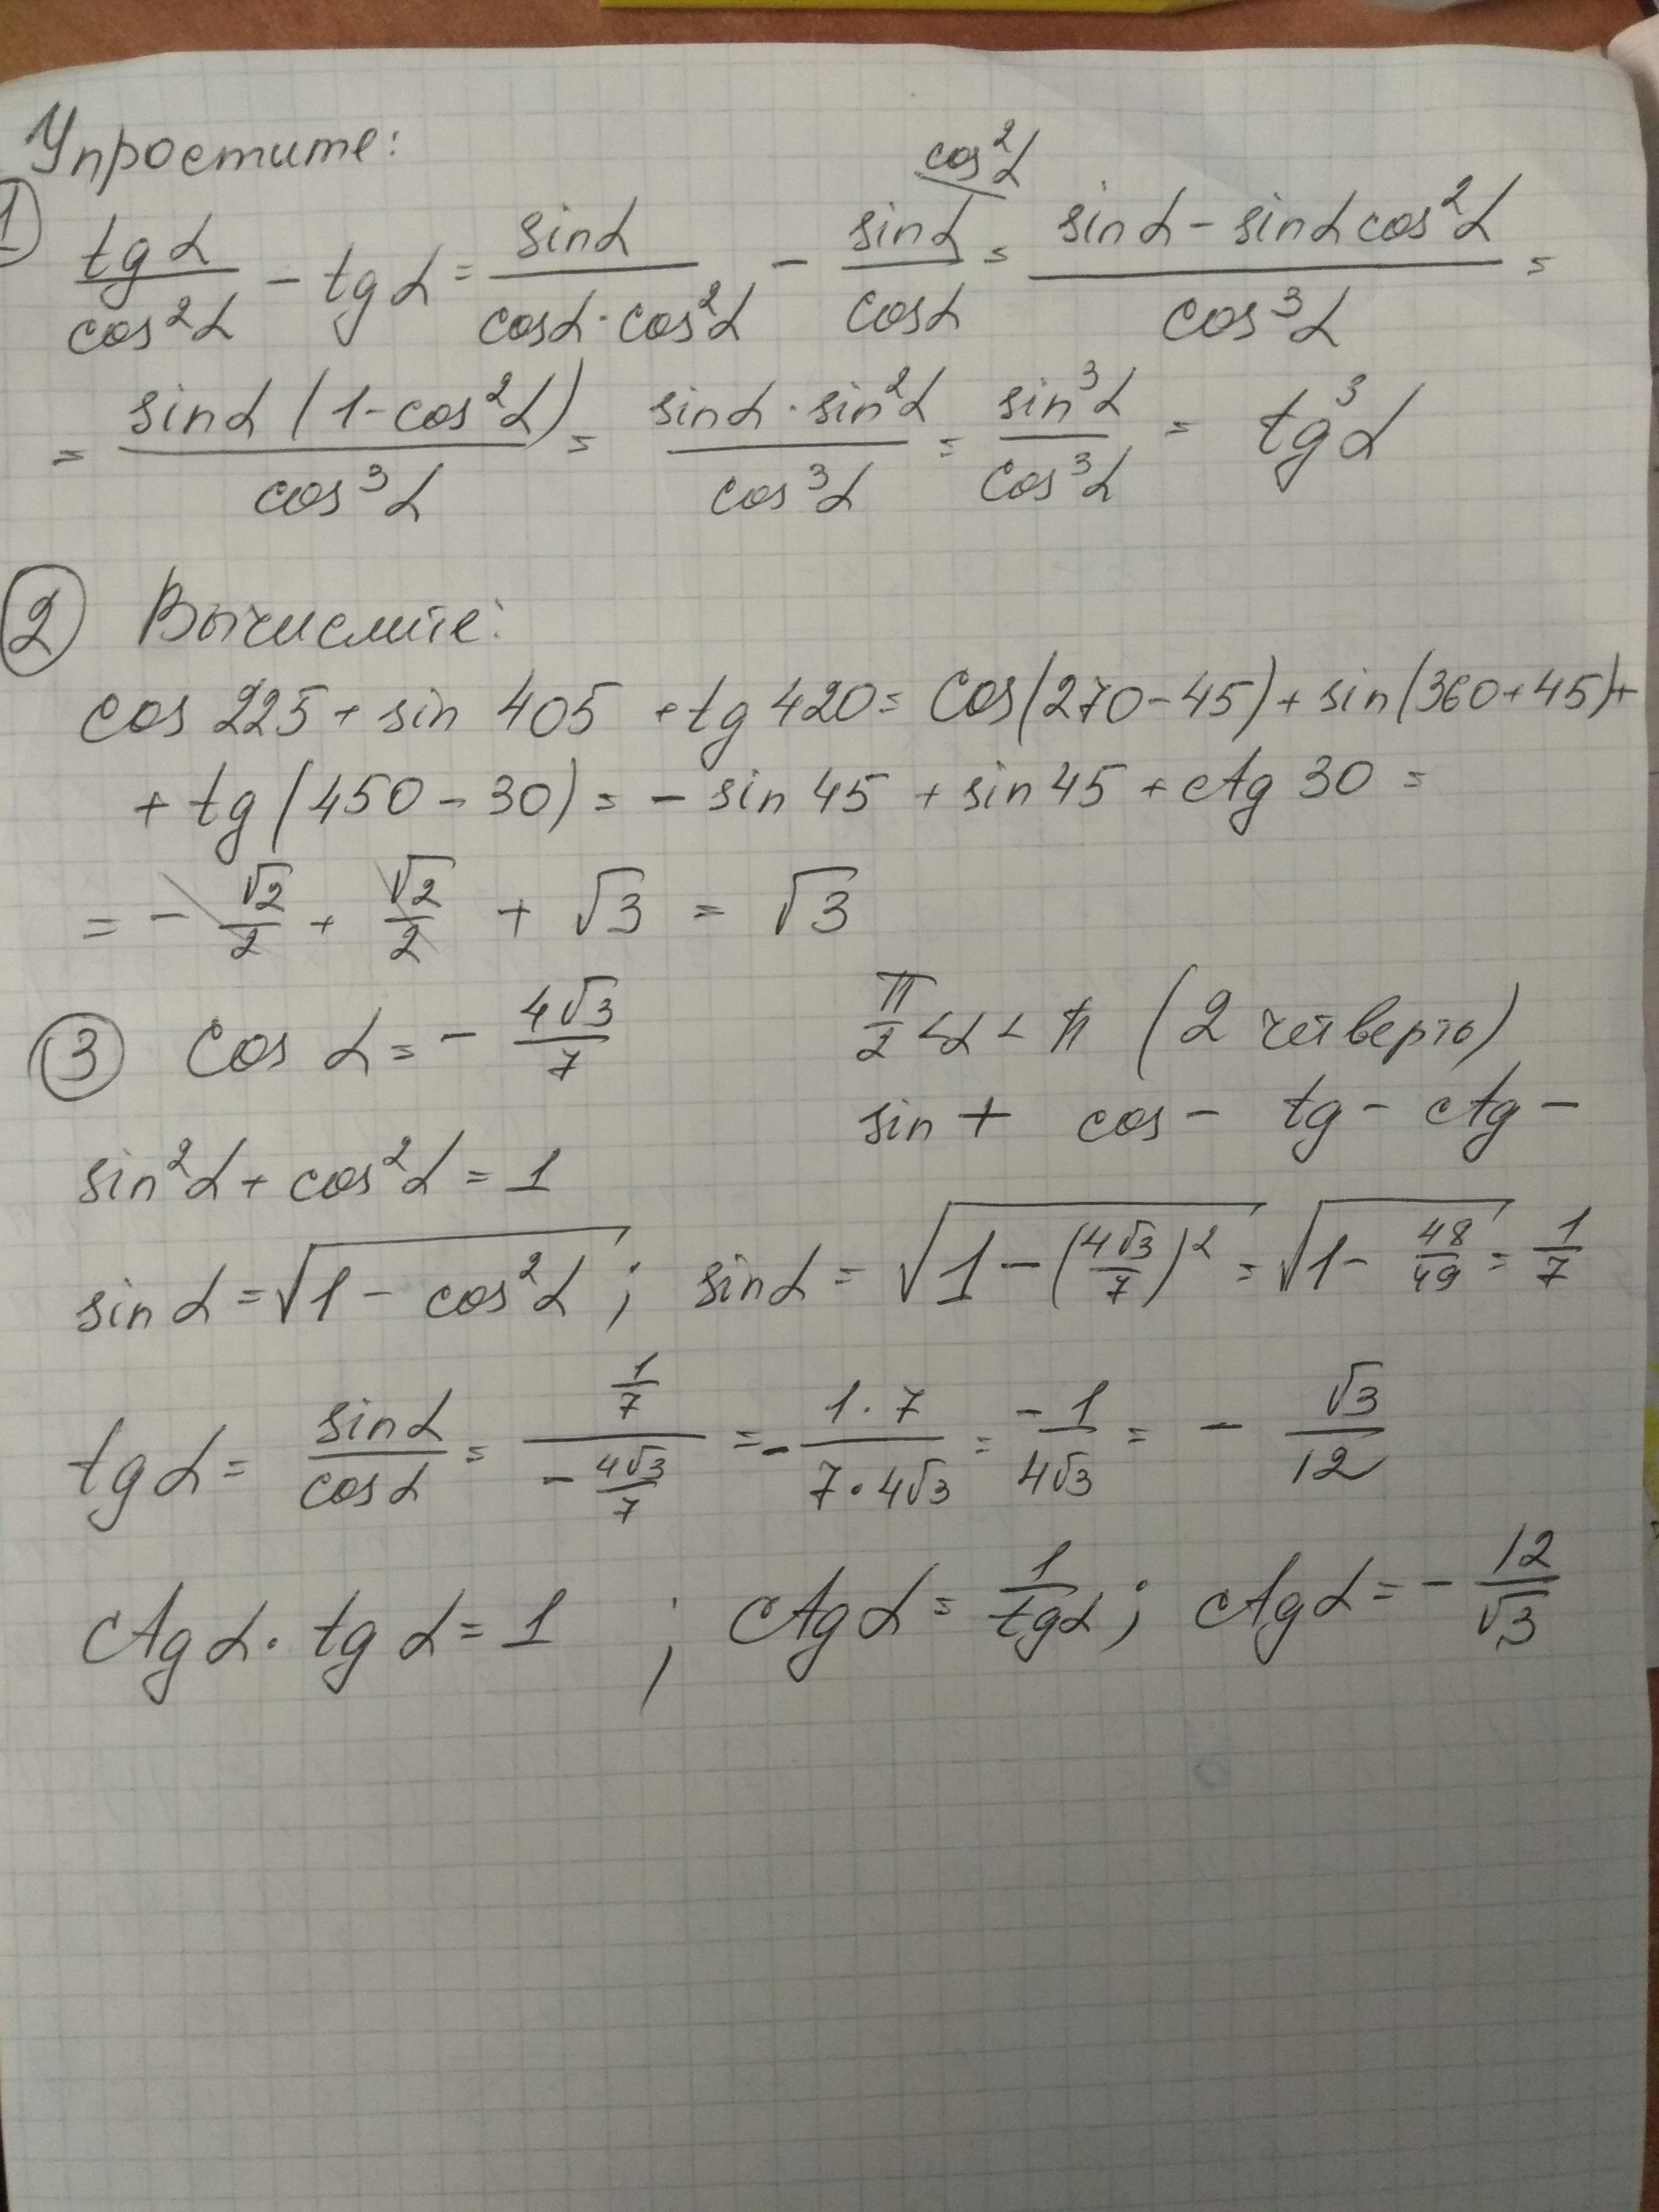 Упростите:
① tgα/cos²α - tgα = sinα/(cosα·cos²α) - sinα/cosα (cos²α = (sinα - sinαcos²α)/cos³α =
= sinα(1-cos²α)/cos³α = sinα·sin²α/cos³α = sin³α/cos³α = tg³α
② Вычислите:
cos 225 + sin 405 + tg 420 = Cos(270-45) + sin(360+45)+
+ tg(450-30) = - sin 45 + sin 45 + ctg 30 =
= - √2/2 + √2/2 + √3 = √3
③ Cos α = - 4√3/7   π/2 < α < π (2 четверть)
sin + cos - tg - ctg -
sin²α + cos²α = 1
sin α = √(1 - cos²α) ; sinα = √(1 - (4√3/7)²) = √(1 - 48/49) = 1/7
tgα = sinα/cosα = (1/7)/(-4√3/7) = - 1·7/(7·4√3) = -1/(4√3) = - √3/12
ctgα · tgα = 1 ; ctgα = 1/tgα ; ctgα = - 12/√3